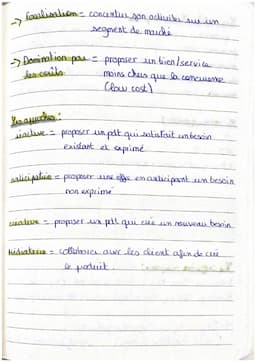 -> Focalisation = concentrer son activité sur un
segment de marché
-> Domination par = proposer un bien/service
les coûts moins chers que la concurrence
(low cost)
Les approches :
réactive = proposer un pdt qui satisfait un besoin
existant et exprimé
anticipative = proposer une offre en anticipant un besoin
non exprimé
créative = proposer un pdt qui crée un nouveau besoin
Médiatrice = collaborer avec les client afin de crée
le produit